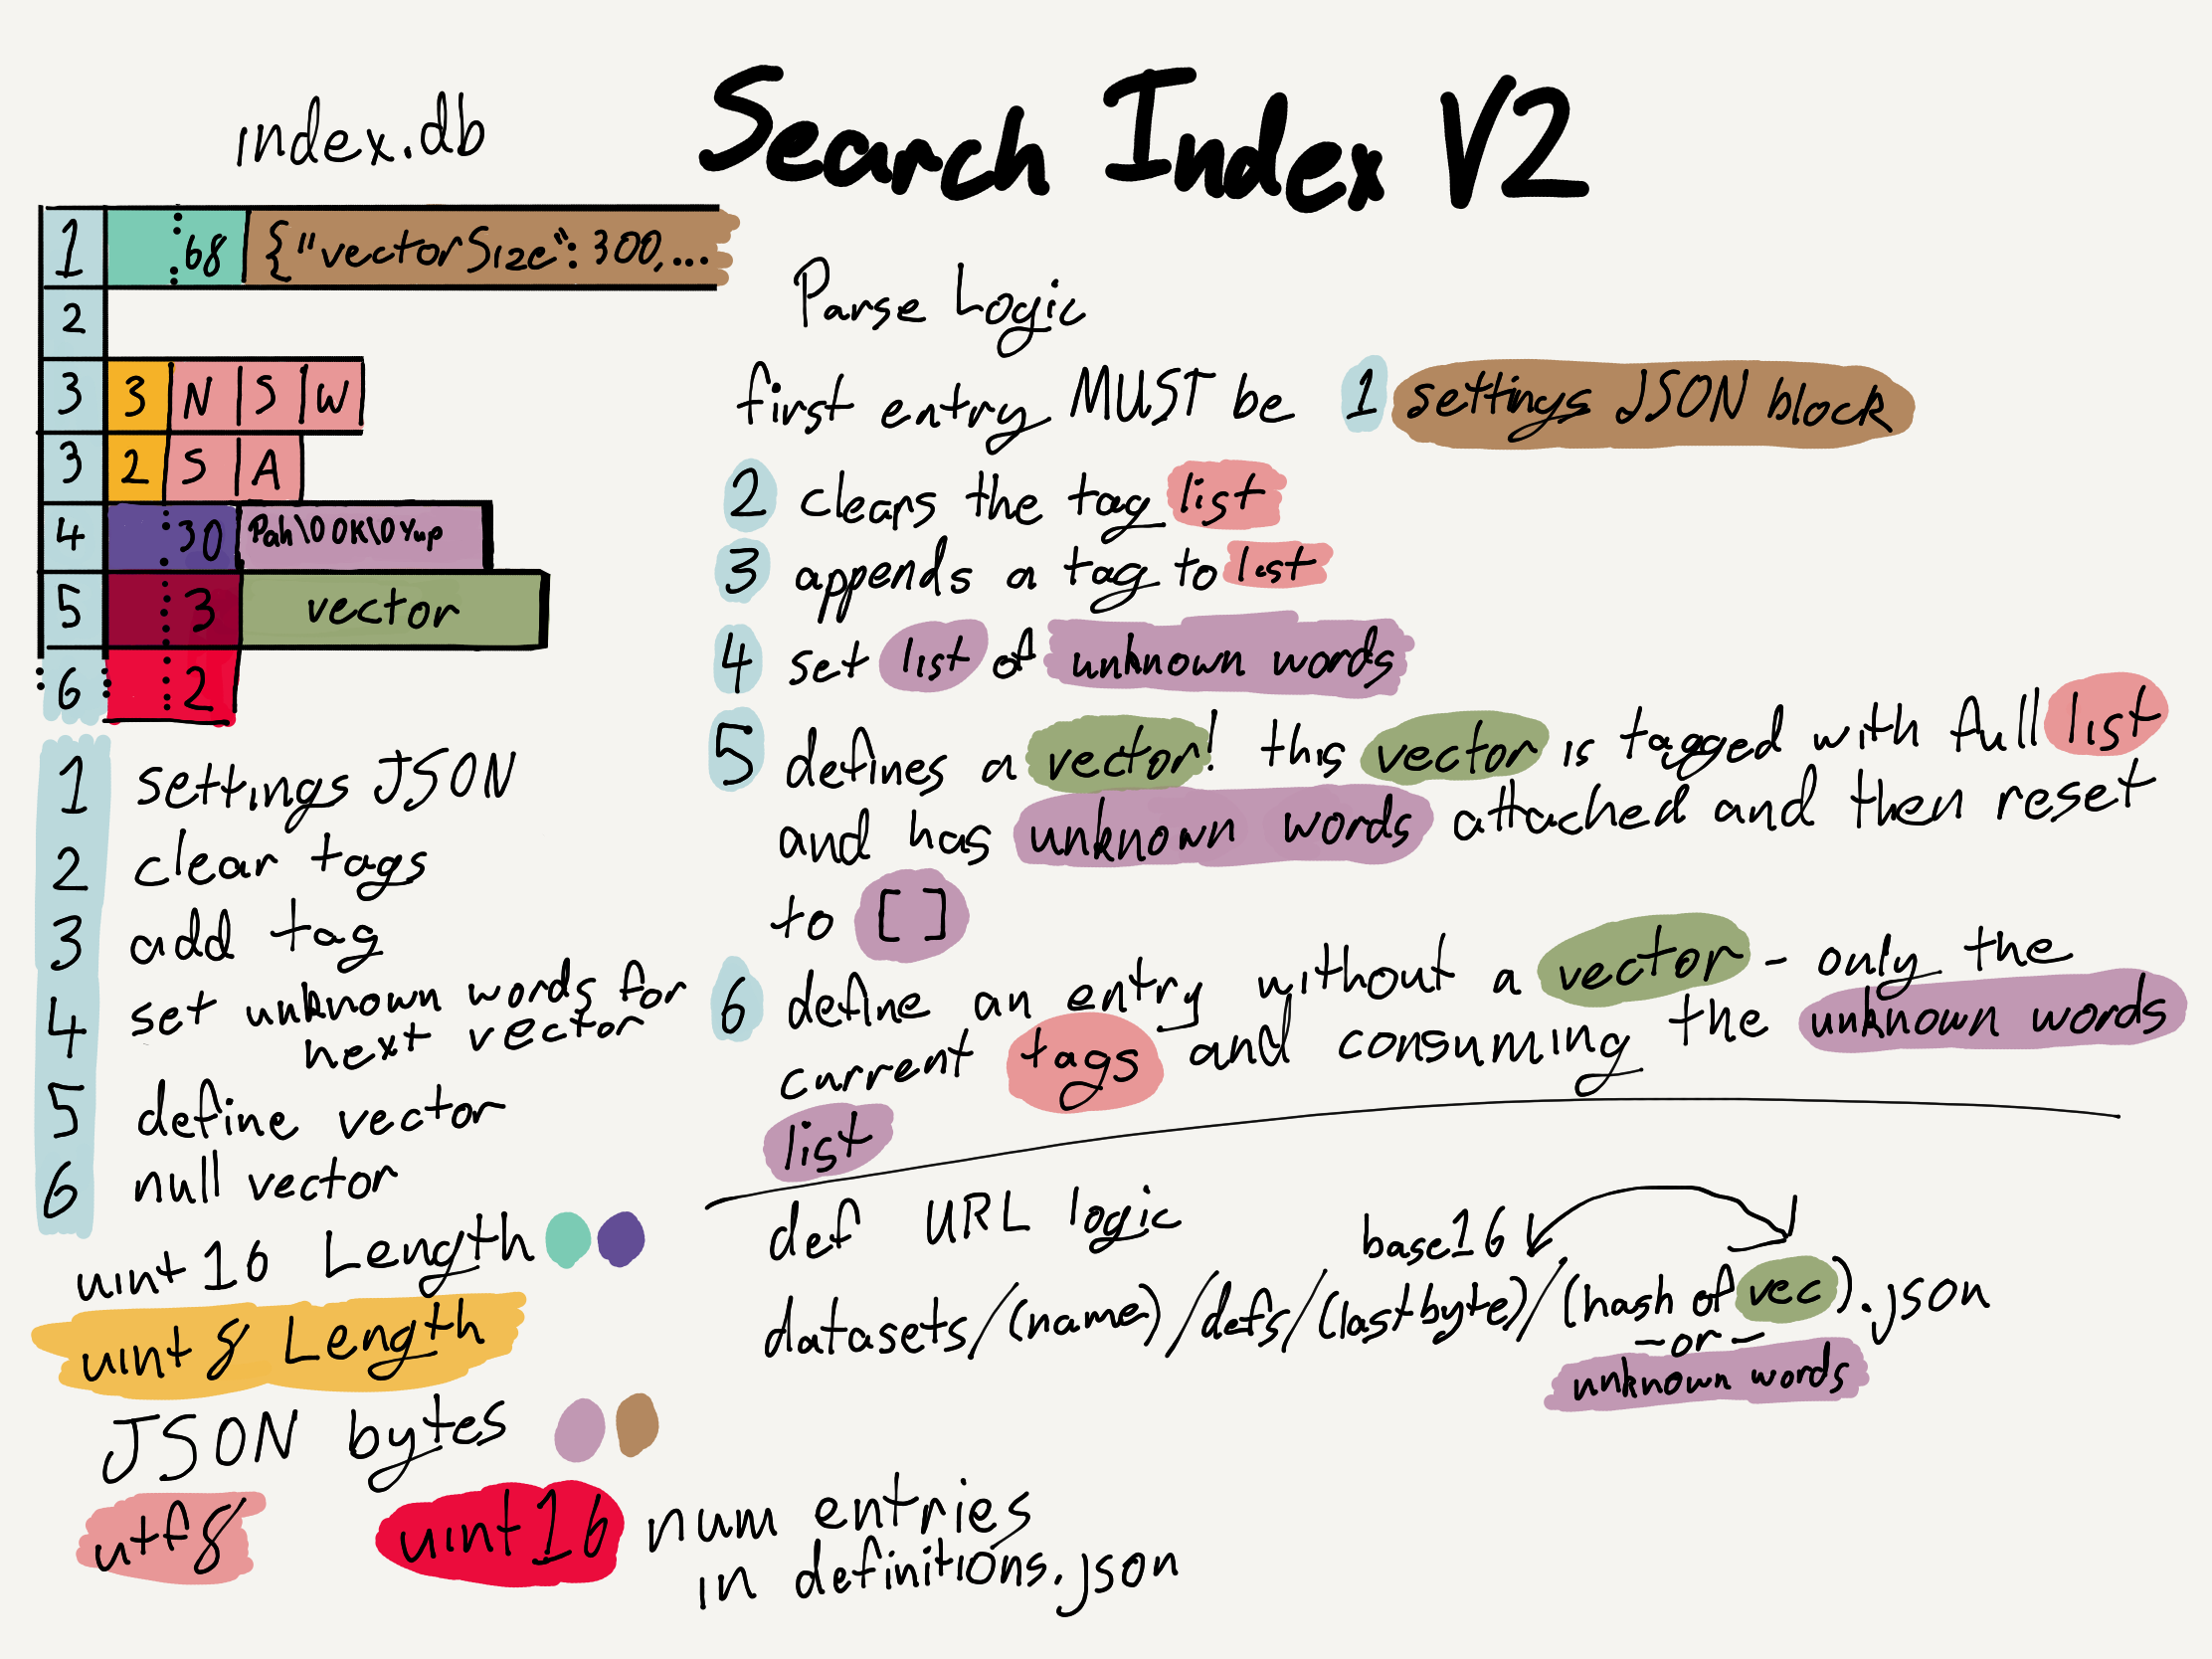 Search Index V2
index.db
1 68 {"vectorSize": 300,...
2
3 3 N S W
3 2 S A
4 30 Pah\0OK\0Yup
5 3 vector
6 2
1 settings JSON
2 clear tags
3 add tag
4 set unknown words for
next vector
5 define vector
6 null vector
uint16 Length
uint8 Length
JSON bytes
utf8
uint16 num entries
in definitions.json
Parse Logic
first entry MUST be 1 settings JSON block
2 clears the tag list
3 appends a tag to list
4 set list of unknown words
5 defines a vector! this vector is tagged with full list
and has unknown words attached and then reset
to []
6 define an entry without a vector - only the
current tags and consuming the unknown words
list
def URL logic
base16
datasets/(name)/defs/(lastbyte)/(hash of vec).json
-or-
unknown words